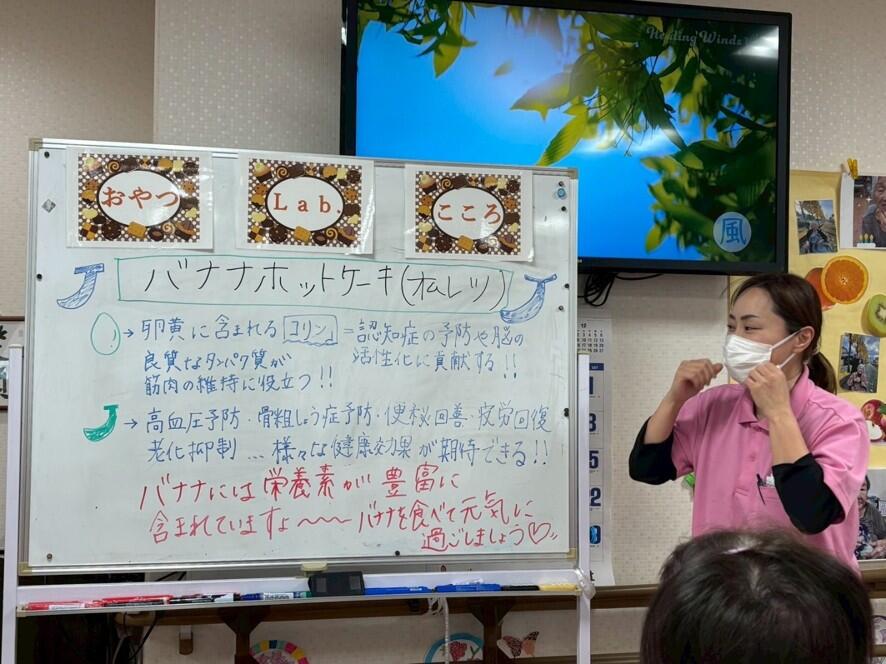 Healing Winds
風
おやつ
Lab.
こころ
バナナホットケーキ(オムレツ)
→ 卵黄に含まれる「コリン」=認知症の予防や脳の
活性化に貢献する!!
良質なタンパク質が
筋肉の維持に役立つ!!
→ 高血圧予防・骨粗しょう症予防・便秘回善・疲労回復
老化抑制…様々な健康効果が期待できる!!
バナナには栄養素が豊富に
含まれていますよ〜〜バナナを食べて元気に
過ごしましょう♡